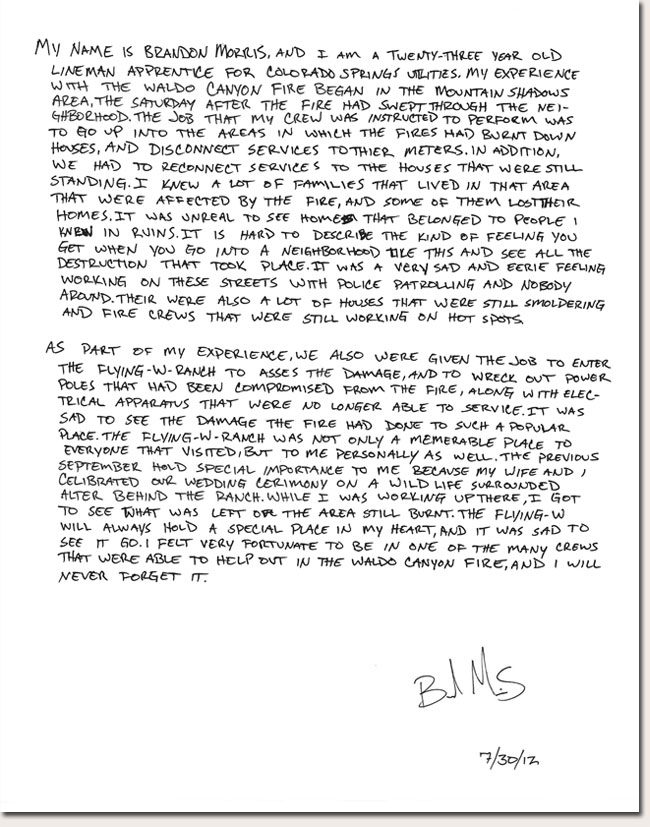 MY NAME IS BRANDON MORRIS, AND I AM A TWENTY-THREE YEAR OLD
LINEMAN APPRENTICE FOR COLORADO SPRINGS UTILITIES. MY EXPERIENCE
WITH THE WALDO CANYON FIRE BEGAN IN THE MOUNTAIN SHADOWS
AREA, THE SATURDAY AFTER THE FIRE HAD SWEPT THROUGH THE NEI-
GHBORHOOD. THE JOB THAT MY CREW WAS INSTRUCTED TO PERFORM WAS
TO GO UP INTO THE AREAS IN WHICH THE FIRES HAD BURNT DOWN
HOUSES, AND DISCONNECT SERVICES TO THIER METERS. IN ADDITION,
WE HAD TO RECONNECT SERVICES TO THE HOUSES THAT WERE STILL
STANDING. I KNEW A LOT OF FAMILIES THAT LIVED IN THAT AREA
THAT WERE AFFECTED BY THE FIRE, AND SOME OF THEM LOST THEIR
HOMES. IT WAS UNREAL TO SEE HOMES THAT BELONGED TO PEOPLE I
KNEW IN RUINS. IT IS HARD TO DESCRIBE THE KIND OF FEELING YOU
GET WHEN YOU GO INTO A NEIGHBORHOOD LIKE THIS AND SEE ALL THE
DESTRUCTION THAT TOOK PLACE. IT WAS A VERY SAD AND EERIE FEELING
WORKING ON THESE STREETS WITH POLICE PATROLLING AND NOBODY
AROUND. THEIR WERE ALSO A LOT OF HOUSES THAT WERE STILL SMOLDERING
AND FIRE CREWS THAT WERE STILL WORKING ON HOT SPOTS.
AS PART OF MY EXPERIENCE, WE ALSO WERE GIVEN THE JOB TO ENTER
THE FLYING-W-RANCH TO ASSES THE DAMAGE, AND TO WRECK OUT POWER
POLES THAT HAD BEEN COMPROMISED FROM THE FIRE, ALONG WITH ELEC-
TRICAL APPARATUS THAT WERE NO LONGER ABLE TO SERVICE. IT WAS
SAD TO SEE THE DAMAGE THE FIRE HAD DONE TO SUCH A POPULAR
PLACE. THE FLYING-W-RANCH WAS NOT ONLY A MEMERABLE PLACE TO
EVERYONE THAT VISITED, BUT TO ME PERSONALLY AS WELL. THE PREVIOUS
SEPTEMBER HOLD SPECIAL IMPORTANCE TO ME BECAUSE MY WIFE AND I
CELIBRATED OUR WEDDING CERIMONY ON A WILD LIFE SURROUNDED
ALTER BEHIND THE RANCH. WHILE I WAS WORKING UP THERE, I GOT
TO SEE WHAT WAS LEFT OR THE AREA STILL BURNT. THE FLYING-W
WILL ALWAYS HOLD A SPECIAL PLACE IN MY HEART, AND IT WAS SAD TO
SEE IT GO. I FELT VERY FORTUNATE TO BE IN ONE OF THE MANY CREWS
THAT WERE ABLE TO HELP OUT IN THE WALDO CANYON FIRE, AND I WILL
NEVER FORGET IT.
7/30/12